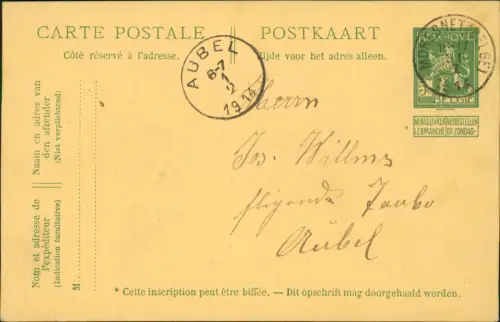 CARTE POSTALE
POSTKAART
Côté réservé à l'adresse.
Zijde voor het adres alleen.
AUBEL
6-7
1
2
1914
BELGIE
NIET BESTELLEN
DIMANCHE OP ZONDAG
Naam en adres van
den afzender
(Niet verplichtend)
Nom et adresse de
l'expéditeur
(Indication facultative)
M
Herrn
Jos. Willms
fligende Taube
Aubel
* Cette inscription peut être biffée. — Dit opschrift mag doorgehaald worden.